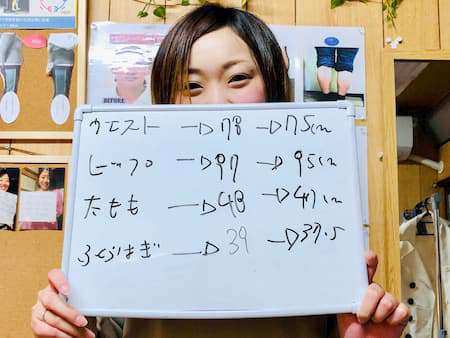 BEFORE
ウエスト →78 →75cm
ヒップ →97 →95cm
太もも →48 →47cm
ふくらはぎ →39 →37.5